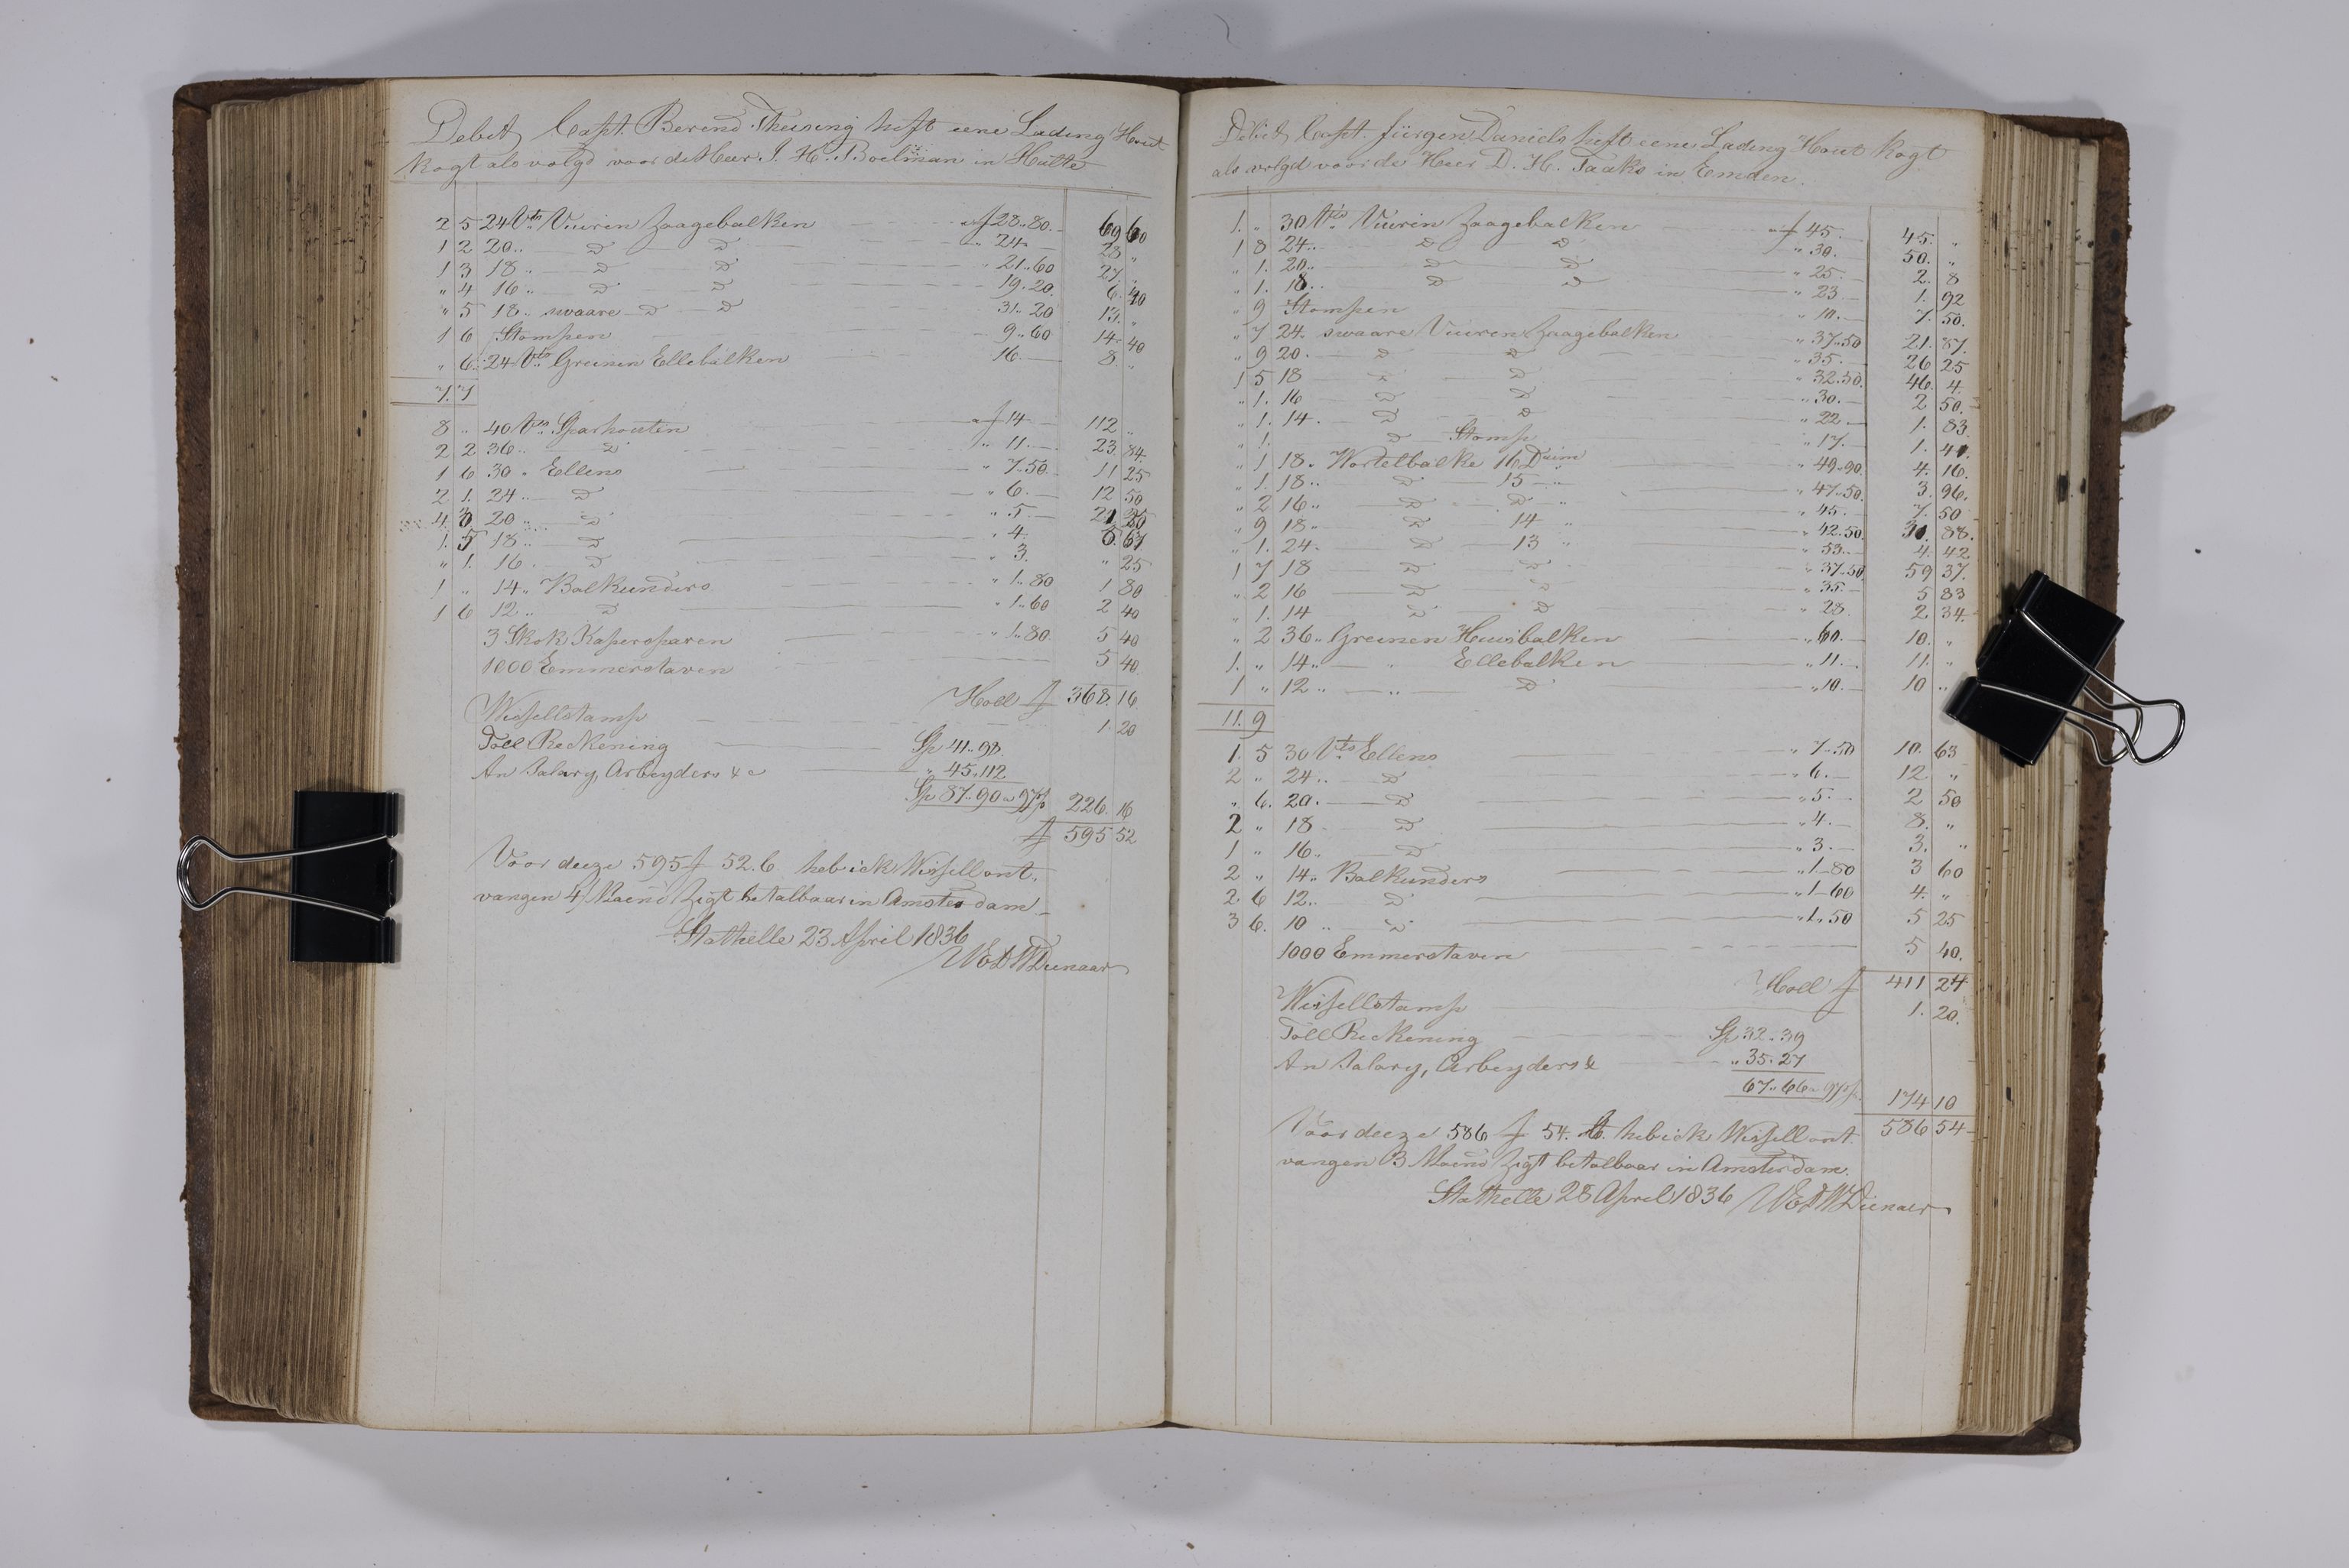 Debet Capt. Berend Theising heft eene Lading Hout
kogt als volgd voor de Heer J. H. Boelman in Hulte
2 5 24 Vts Vuuren Zaagebalken a f 28.. 80. 69 60
1 2 20.. D D " 24 28 "
1 3 18.. D D " 21.. 60 27 "
" 4 16.. D D 19. 20. 6. 40
" 5 18.. swaare D D 31.. 20 13. "
1 6 Stompen 9.. 60 14. 40
" 6. 24 Vts Greinen Ellebalken 16. 8. "
7. 7
8 .. 40 Vts Sparhouten a f 14 112 ..
2 2 36.. D " 11. 23. 84.
1 6 30 " Ellens " 7. 50. 11 25
2 1. 24.. D " 6. 12 50
4 3 20.. D " 5 21 25
1. 5 18.. D " 4. 5. 67
" 1. 16. D " 3. " 25
1 " 14 " Balkunders " 1.. 80 1 80
1 6 12.. D " 1.. 60 2 40
3 Skok Kapersparen " 1.. 80. 5 40
1000 Emmerstaven 5 40.
Holl f 368. 16
Wissellstamp 1. 20
Toll Reckening Sp 41.. 98.
An Salary, Arbeyders & c " 45.. 112
Sp 87.. 90 a 97 226. 16
f 595 52
Voor deeze 595 f 52. C heb ick Wissell ont-
vangen 4/ Maend Zigt betalbaar in Amsterdam
Stathelle 23 April 1836
Dienaar
Debet Capt. Jürgen Daniels heft eene Lading Hout kogt
als volgd voor de Heer D. H. Taaks in Emden.
1. " 30 Vts Vuuren Zaagebalken a f 45. 45. "
1 8 24.. D D " 30. 50. "
" 1. 20.. D D " 25 2. 8
" 1. 18.. D D " 23 1. 92
" 9 Stompen " 10. 7. 50.
" 7 24. swaare Vuuren Zaagebalken " 37.. 50 21. 87.
" 9 20. D D " 35. 26 25
1 5 18 D D " 32. 50. 46. 4
" 1. 16 D D " 30. 2 50.
" 1. 14. D D " 22 1. 83
" 1. D Stomp " 17. 1. 41.
" 1 18. Wortelbalke 16 Duim " 49. 90. 4. 16.
" 1. 18.. D 15 " " 47.. 50. 3. 96.
" 2 16 " D D " " 45. 7. 50
" 9 18 " D 14 " " 42. 50. 31. 88.
" 1. 24. D 13 " " 53.. 4. 42
1 7 18 D D " 37.. 50 59 37.
" 2 16 D D " 35. 5 83
" 1. 14 D D " 28. 2 34.
" 2 36.. Greinen Huusbalken " 60. 10. "
1. " 14.. " Ellebalken " 11. 11. "
1 " 12.. " D " 10. 10 "
11. 9
1. 5 30 Vts Ellens " 7. 50 10. 63
2 " 24.. D " 6. 12 "
" 6. 20. D " 5. 2 50
2 " 18. D " 4. 8. "
1 " 16. D " 3. 3. "
2 " 14.. Balkunders " 1. 80 3 60
2 6 12.. D " 1. 60 4. "
3 6. 10.. D " 1. 50 5 25
1000 Emmerstaven 5 40.
Holl f 411 24
Wissellstamp 1. 20.
Toll Reckening Sp 32.. 39
An Salary, Arbeyders & .. 35. 27
67.. 66 a 97 174 10
Voor deeze 586 f 54. C. heb ick Wissell ont- 586 54
vangen 3 Maend Zigt betalbaar in Amsterdam.
Stathelle 28 April 1836 Dienaer